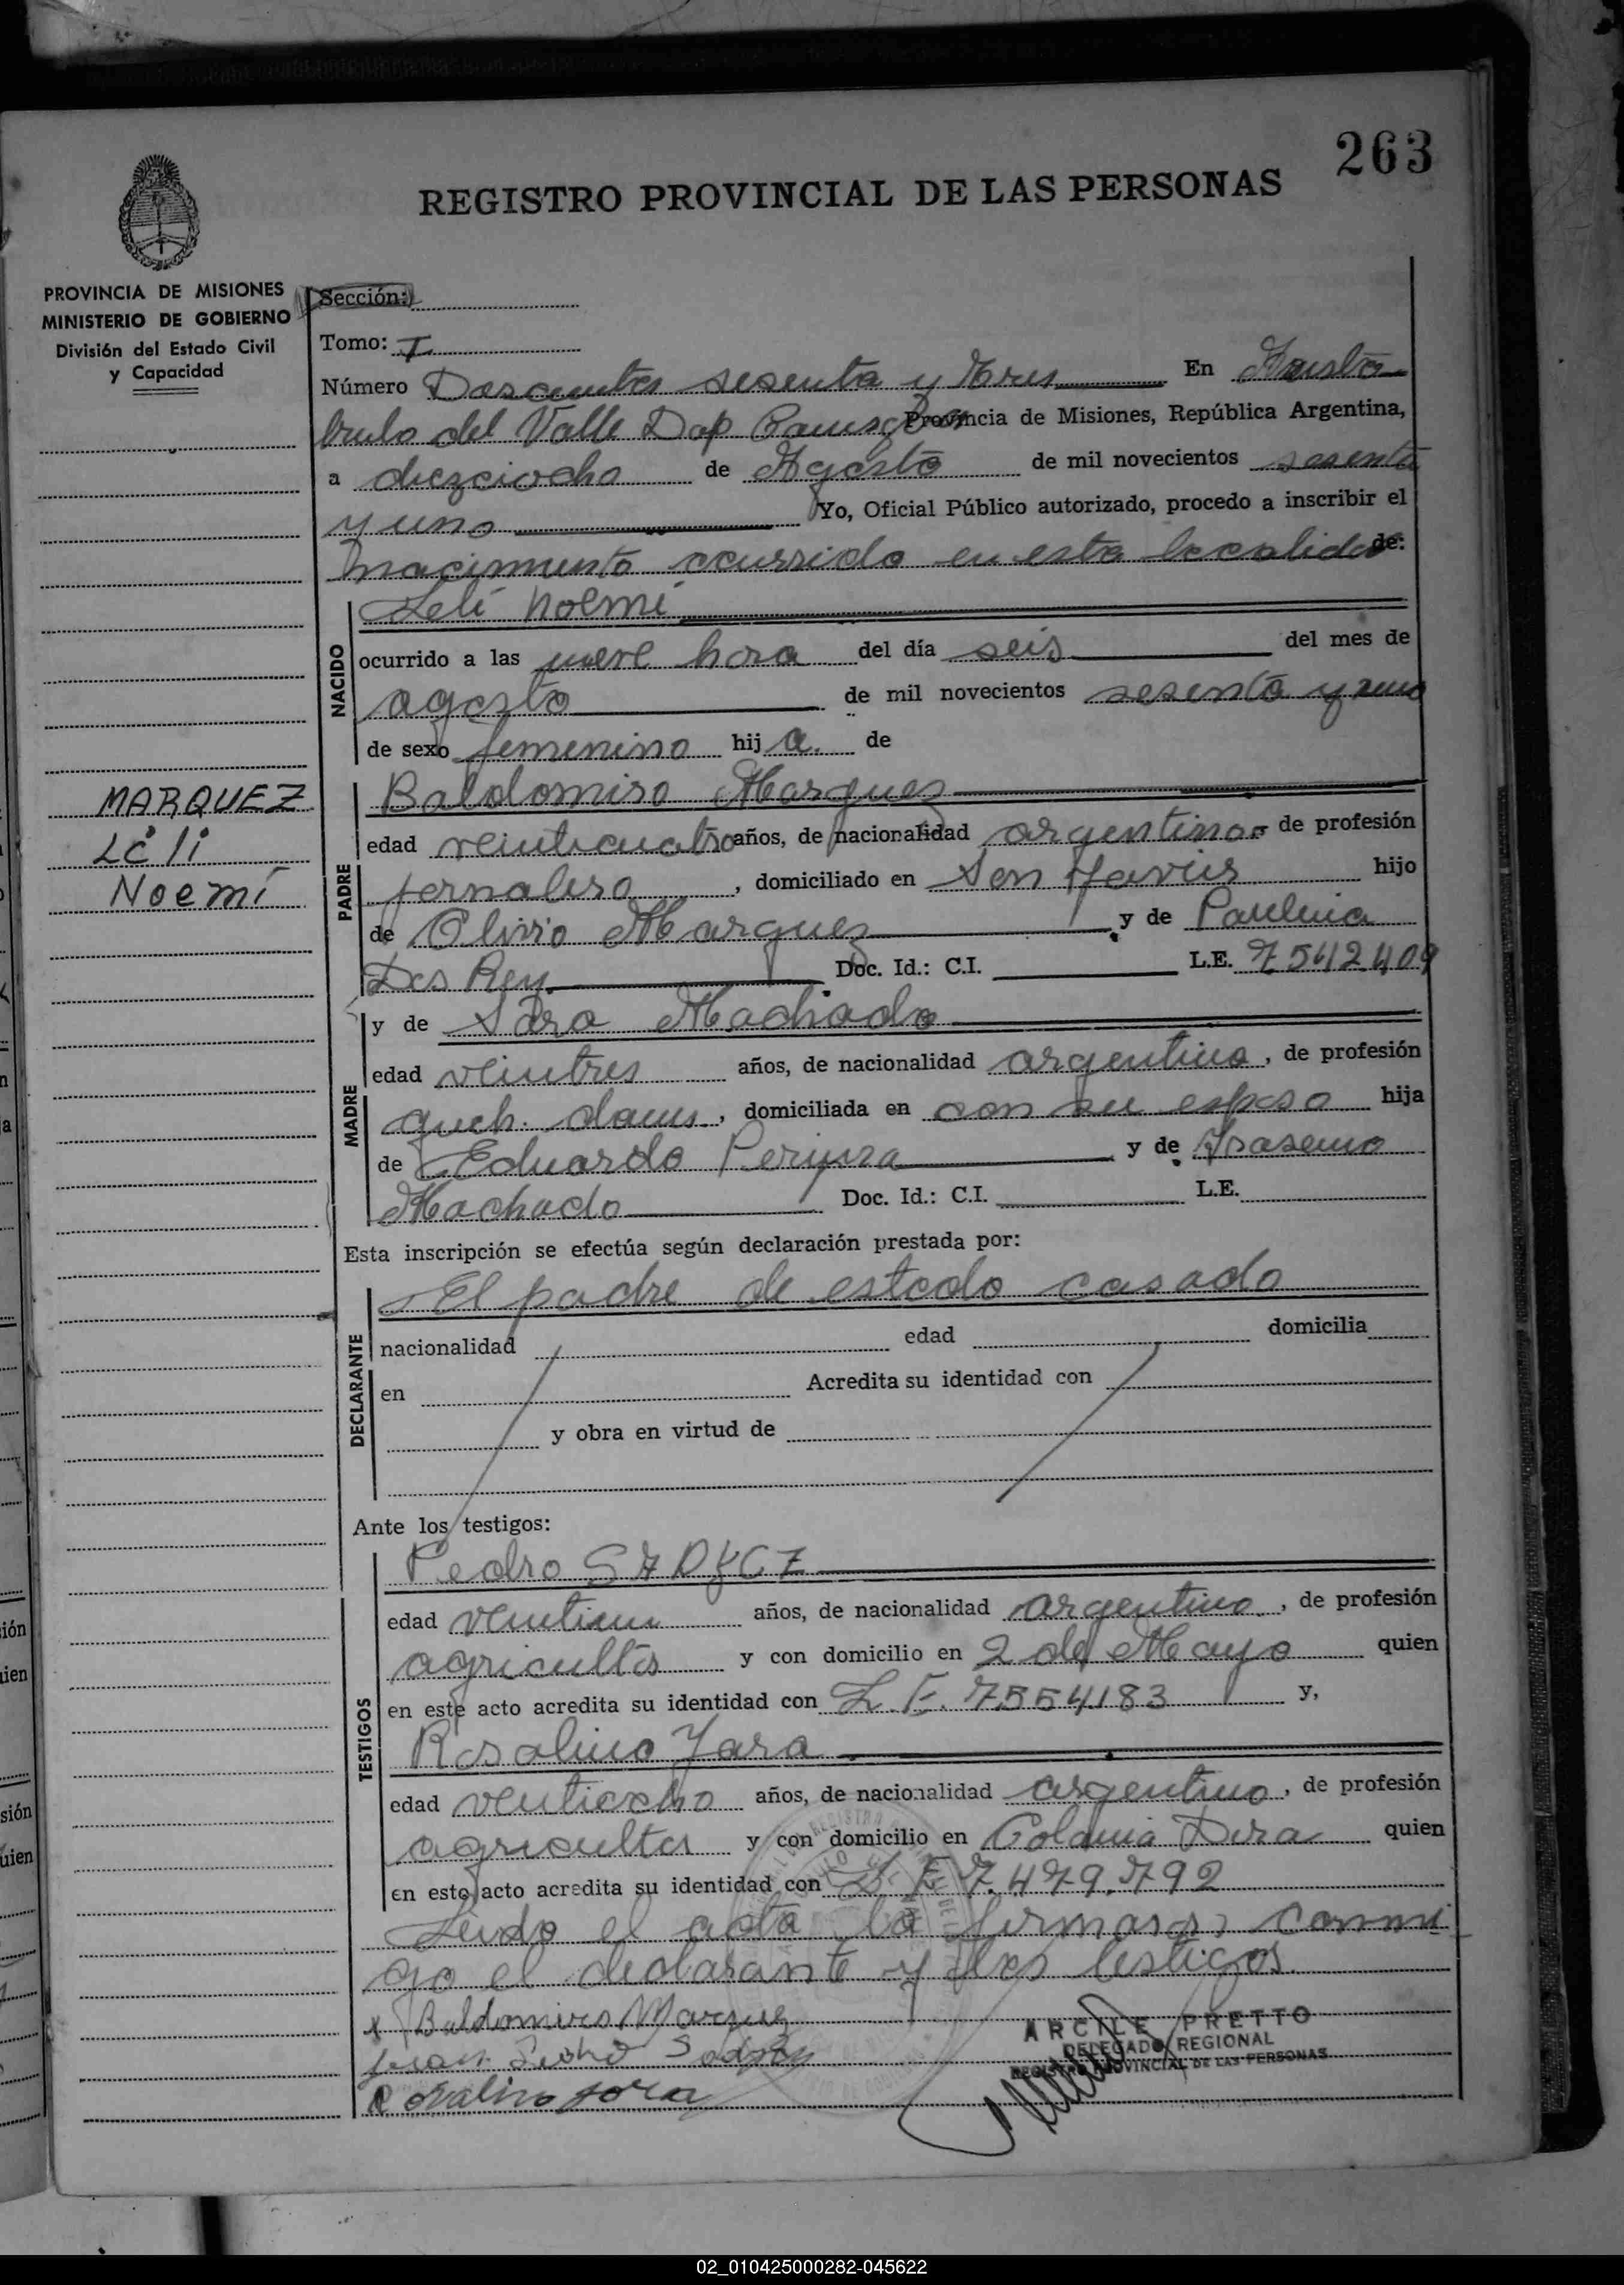 263
REGISTRO PROVINCIAL DE LAS PERSONAS
PROVINCIA DE MISIONES
MINISTERIO DE GOBIERNO
División del Estado Civil
y Capacidad
Sección:
Tomo: I
Número Doscientos sesenta y tres En
del Valle Dep Provincia de Misiones, República Argentina,
a diezciocho de Agosto de mil novecientos sesenta
y uno Yo, Oficial Público autorizado, procedo a inscribir el
nacimiento ocurrido en esta localidad de:
NACIDO
Leli Noemi
ocurrido a las nueve hora del día seis del mes de
agosto de mil novecientos sesenta y uno
de sexo femenino hij a. de
MARQUEZ
Leli
Noemi
PADRE
Baldomiro Marquez
edad veinticuatro años, de nacionalidad argentino de profesión
jornalero, domiciliado en San Javier hijo
de Olivio Marquez y de Paulina
Dos Rey Doc. Id.: C.I. L.E. 7542409
MADRE
y de Sara Machado
edad veintres años, de nacionalidad argentina, de profesión
queh. doms., domiciliada en con su esposo hija
de Eduardo y de
Machado Doc. Id.: C.I. L.E.
Esta inscripción se efectúa según declaración prestada por:
DECLARANTE
El padre de estado casado
nacionalidad edad domicilia
en Acredita su identidad con
y obra en virtud de
Ante los testigos:
TESTIGOS
Pedro
edad años, de nacionalidad argentino, de profesión
agricultor y con domicilio en 2 de Mayo quien
en este acto acredita su identidad con L.E. 7554183 y,
Rosalino Jara
edad ventiocho años, de nacionalidad argentino, de profesión
agricultor y con domicilio en Colonia quien
en este acto acredita su identidad con L.E 7.479.792
Leido el acta la firmaron conmi
go el declarante y los testigos.
x Baldomiro Marquez
Rosalino Jara
ARCILE PRETTO
DELEGADO REGIONAL
REGISTRO PROVINCIAL DE LAS PERSONAS
02_010425000282-045622